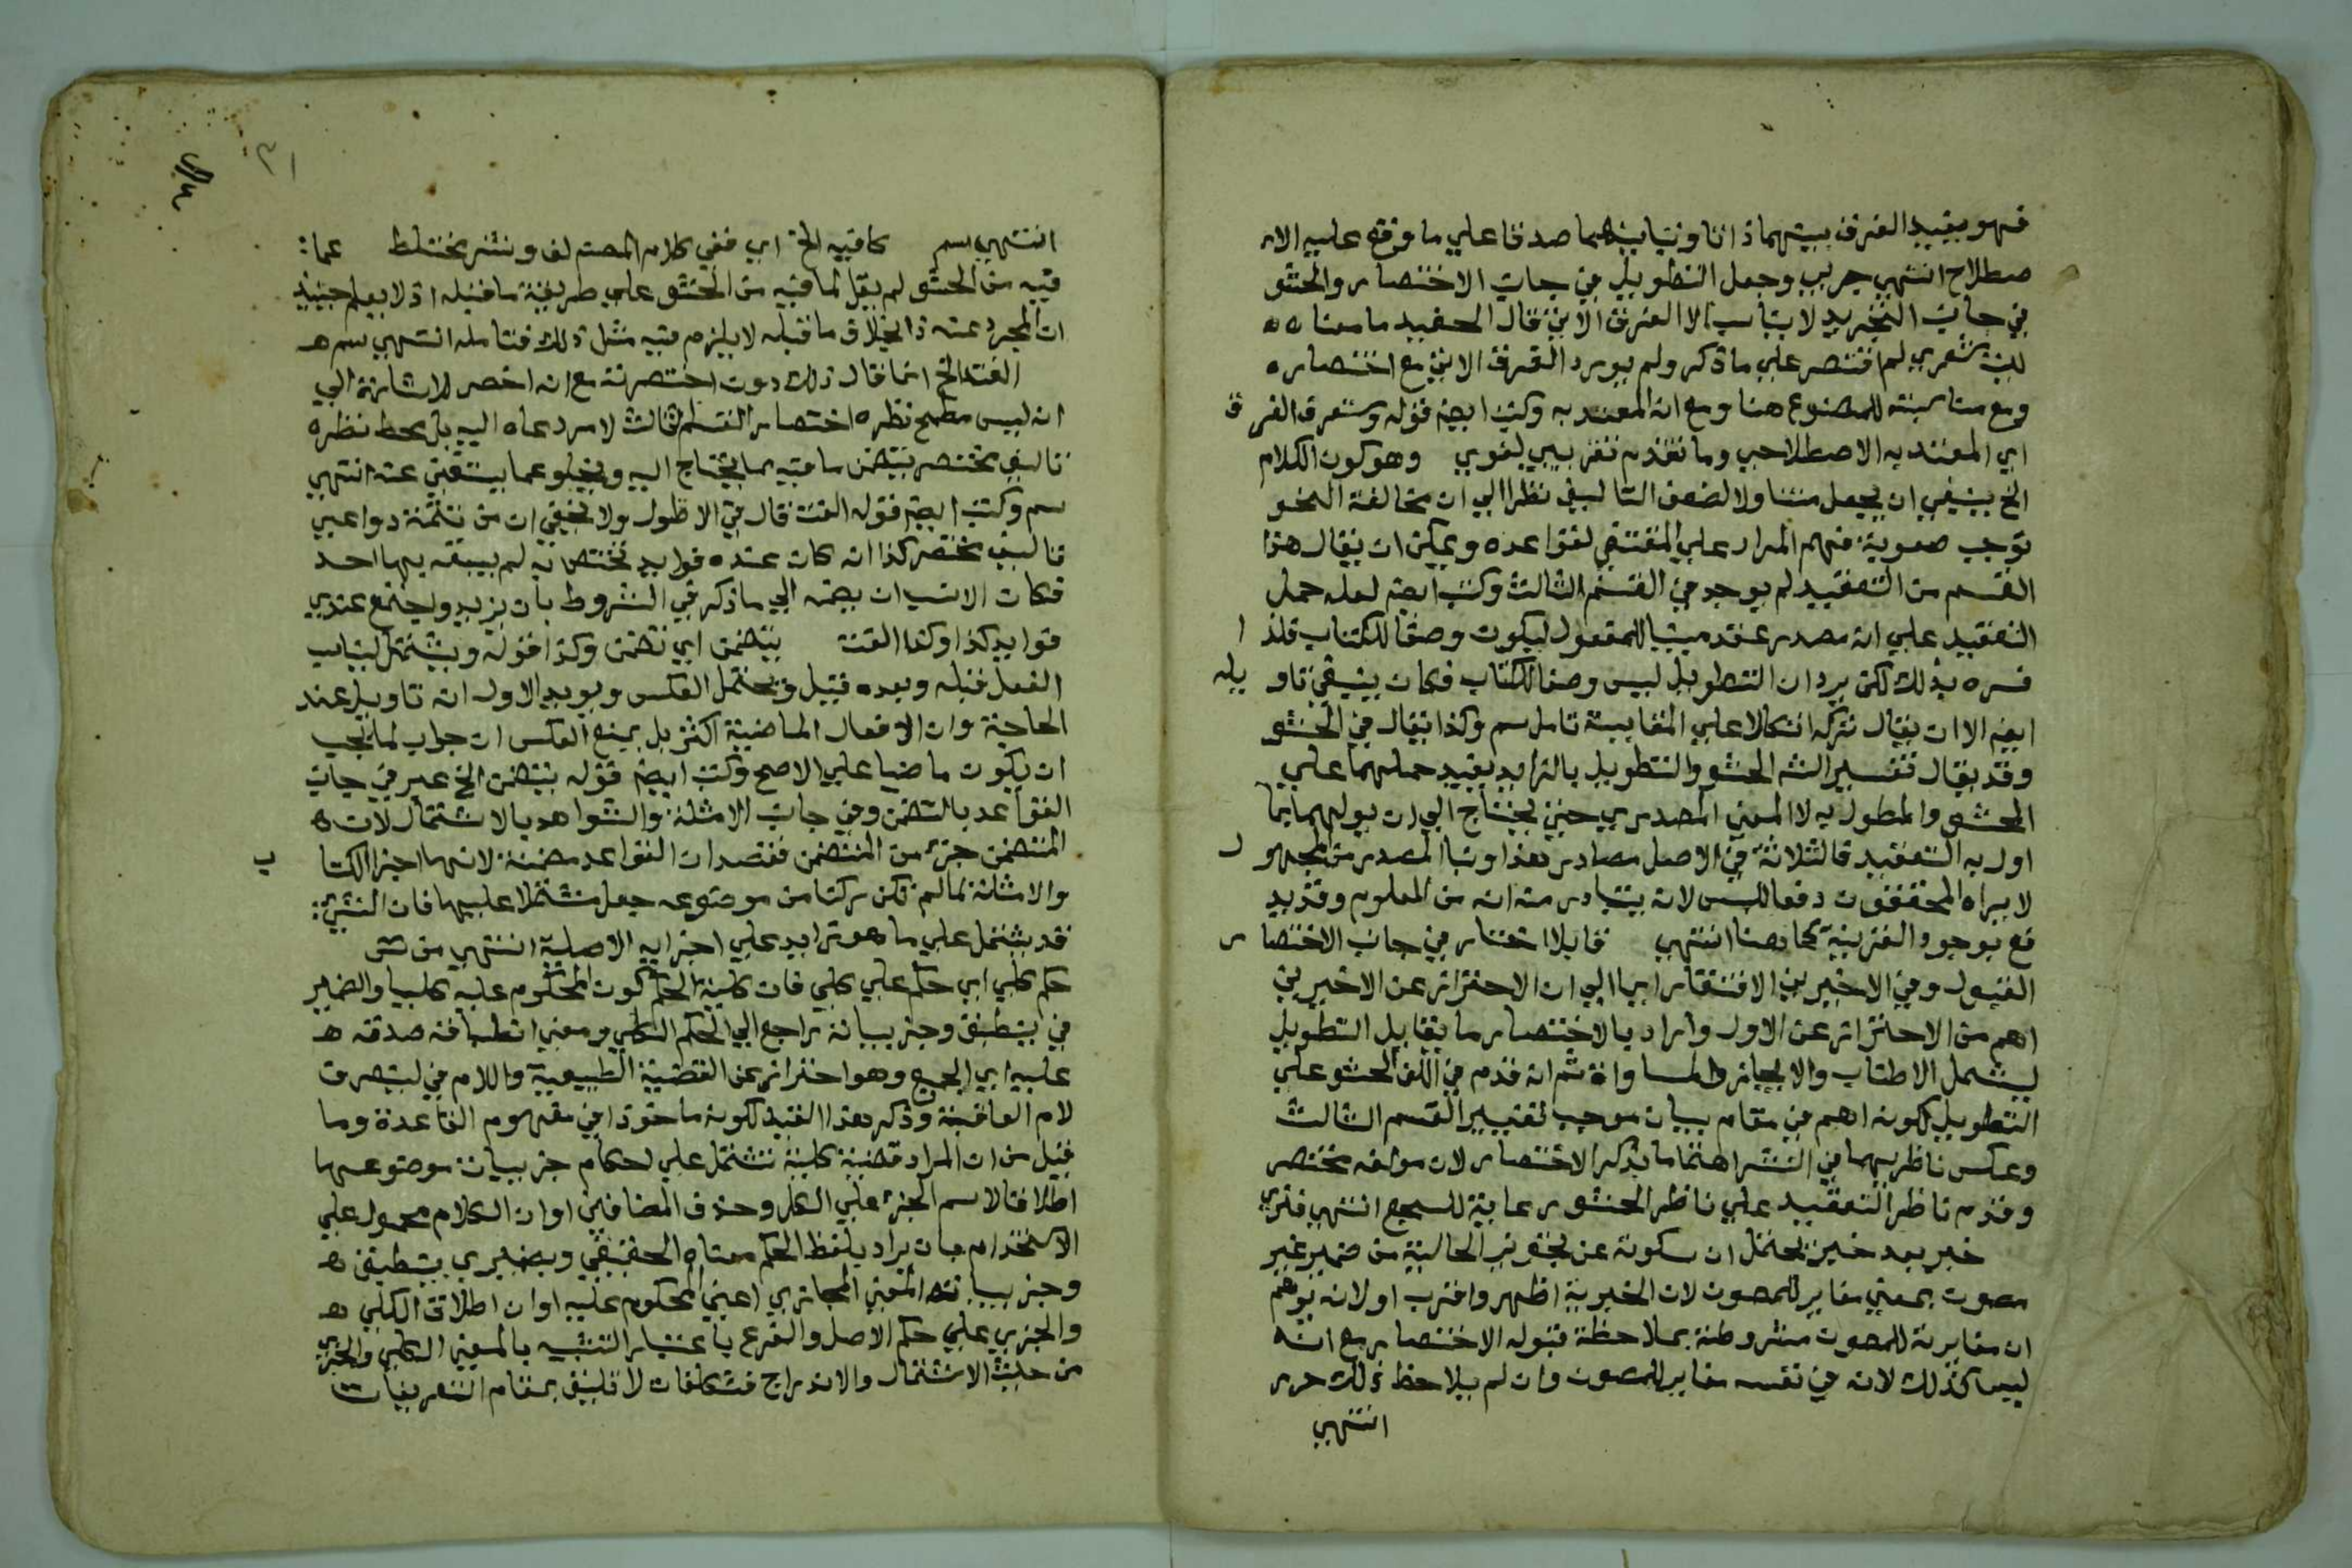 فهو يفيد الفرق بينهما ذاتا وتباينهما صدقا علي ما وقع عليه الا
صطلاح انتهي جربي وجعل التطويل في جانب الاختصار والحشو
في جانب التجريد لا يناسب الا الفرق الاتي قال الحفيد ما معناه
ليت شعري لم اقتصر علي ما ذكر ولم يورد الفرق الاتي مع اختصاره
ومع مناسبته للمصنوع هنا ومع انه المعتد به وكتب ايضم قوله وستعرف الفرق
اي المعتد به الاصطلاحي وما تقدم تقريبي لغوي وهو كون الكلام
الخ ينبغي ان يجعل متناولا لضعف التاليف نظرا الي ان مخالفة النحو
توجب صعوبة فهم المراد علي المقتفي لقواعده ويمكن ان يقال هذا
القسم من التعقيد لم يوجد في القسم الثالث وكتب ايضم لعله حمل
التعقيد علي انه مصدر عقد مبنيا للمفعول ليكون وصفا للكتاب فلذا
فسره بذلك لكن يرد ان التطويل ليس وصفا للكتاب فكان ينبغي تاويله
ايضم الا ان يقال تركه اتكالا علي المقايسة تامل سم وكذا يقال في الحشو
وقد يقال تفسير الش الحشو والتطويل بالزايد يفيد حملهما علي
المحشو والمطول به لا المعني المصدري حتي يحتاج الي ان يولهما بما
اول به التعقيد فالثلاثة في الاصل مصادر هذا وبنا المصدر من المجهول
لا يراه المحققون دفعا للبس لانه يتبادر منه انه من المعلوم وقد يد
فع بوجود القرينة كما هنا انتهي قابلا اختار في جانب الاختصار
القبول وفي الاخيرين الافتقار ايما الي ان الاحتراز عن الاخيرين
اهم من الاحتراز عن الاول واراد بالاختصار ما يقابل التطويل
ليشمل الاطناب والايجاز والمساواة ثم انه قدم في اللف الحشو علي
التطويل لكونه اهم في مقام بيان موجب تغيير القسم الثالث
وعكس ناظريهما في النشر اهتماما بذكر الاختصار لان مولفه مختصر
وقدم ناظر التعقيد علي ناظر الحشو رعاية للسجع انتهي فنري
خبر بعد خبر يحتمل ان سكوته عن تجويز الحالية من ضمير غير
مصون بمعني مغاير للمصون لان الخبرية اظهر واقرب او لانه يوهم
ان مغايرته للمصون مشروطة بملاحظة قبوله الاختصار مع انه
ليس كذلك لانه في نفسه مغاير للمصون وان لم يلاحظ ذلك
انتهي
انتهي سم كا فيه الخ اي ففي كلام المصنم لف ونشر مختلط عما
فيه من الحشو لم يقل لما فيه من الحشو علي طريقة ما قبله اذ لا يعلم حينيذ
ان المجرد عنه ذا بخلاف ما قبله لا يلزم فيه مثل ذلك فتامله انتهي سم
الفت الخ انما قال ذلك دون اختصرته مع انه اخصر للاشارة الي
ان ليس مطمح نظره اختصار القسم الثالث لامر دعاه اليه بل محط نظره
تاليف مختصر يتضمن ما فيه مما يحتاج اليه ويخلو عما يستغني عنه انتهي
سم وكتب ايضم قوله الفت قال في الاطول ولا يخفي ان من تتمة دواعي
تاليف مختصر كذا ان كان عنده فوايد تختص به لم يسبقه بها احد
فكان الانسب ان يضمه الي ما ذكر في الشروط بان يزيد واجتمع عندي
فوايد كذا وكذا الفت يتضمن اي تضمن وكذا قوله ويشتمل ليناسب
الفعل قبله وبعده قيل ويحتمل العكس ويويد الاول انه تاويل عند
الحاجة وان الافعال الماضية اكثر بل يمنع العكس ان جواب لما يجب
ان يكون ماضيا علي الاصح وكتب ايضم قوله يتضمن الخ عبر في جانب
القواعد بالتضمن وفي جانب الامثلة والشواهد بالاشتمال لان
المتضمن جزء من المتضمن فقصد ان القواعد مضمنة لانها اجزا الكتاب
والامثلة لما لم تكن ركنا من موضوعه جعل مشتملا عليها فان الشي
قد يشتمل علي ما هو زايد علي اجزايه الاصلية انتهي من
حكم كلي اي حكم علي كلي فان كلية الحكم كون المحكوم عليه كليا والضمير
في ينطبق وجزيياته راجع الي الحكم الكلي ومعني انطباقه صدقه
عليه اي الجميع وهو احتراز عن القضية الطبيعية واللام في ليتعرف
لام العاقبة وذكر هذا القيد لكونه ماخوذا في مفهوم القاعدة وما
قيل من ان المراد قضية كلية تشتمل علي احكام جزييات موضوعها
اطلاقا لاسم الجزء علي الكل وحذف المضافين او ان الكلام محمول علي
الاستخدام بان يراد بلفظ الحكم معناه الحقيقي وبضميري ينطبق
وجزيياته المعني المجازي اعني المحكوم عليه او ان اطلاق الكلي
والجزيي علي حكم الاصل والفرع باعتبار التشبيه بالمعني الكلي والجزيي
من حيث الاشتمال والاندراج فتكلفات لا تليق بمقام التعريفات